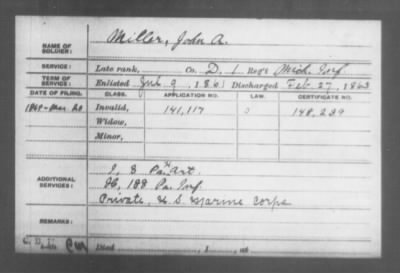 NAME OF SOLDIER: Miller, John A.
SERVICE: Late rank, Co. D, 1 Reg't Mich. Inf.
TERM OF SERVICE: Enlisted 9, 1861 Discharged Feb. 27, 1863
DATE OF FILING. CLASS. APPLICATION NO. LAW. CERTIFICATE NO.
Invalid, 141,117 148,239
Widow,
Minor,
ADDITIONAL SERVICES: I, 3 Pa. H. Art.
H, 188 Pa. Inf.
Private, U. S. Marine Corps
REMARKS:
Died , 1